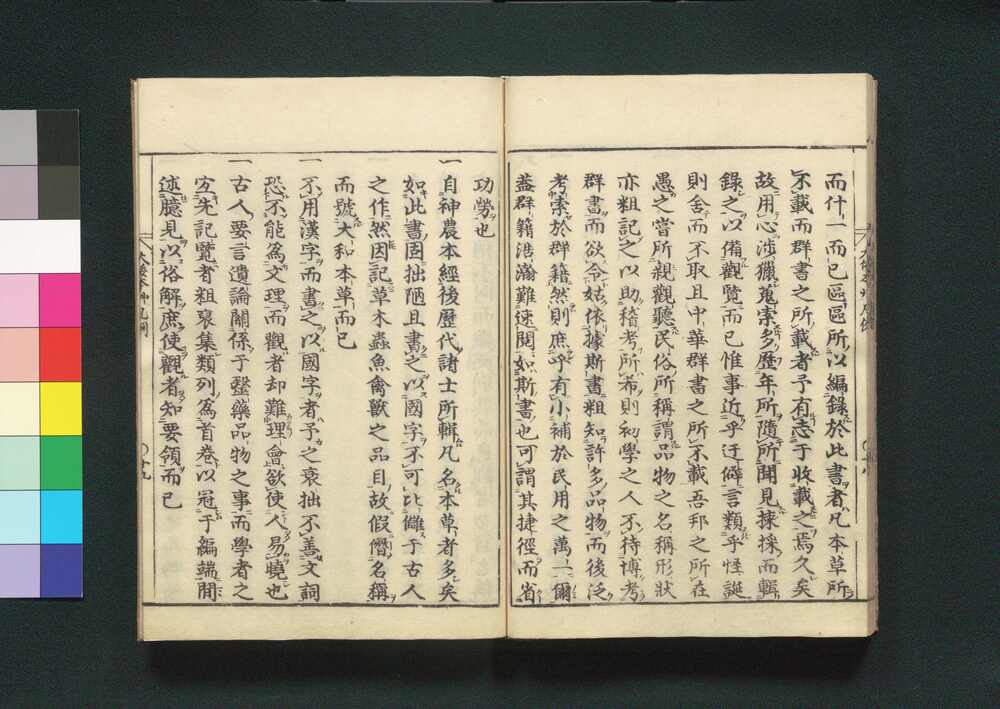 而什一而已區區所以編錄於此書者凡本草所
不載而群書之所載者予有志于收載之焉久矣
故用心涉獵蒐索多歷年所隨所聞見揀採而輯
錄之以備觀覽而已惟事近乎迂僻言類乎怪誕
則舍而不取且中華群書之所不載吾邦之所在
愚之嘗所親觀聽民俗所稱謂品物之名稱形狀
亦粗記之以助稽考所希則初學之人不待博考
群書而欲令姑依據斯書粗知許多品物而後泛
考索於群籍然則庶乎有小補於民用之萬一爾
蓋群籍浩瀚難速閱如斯書也可謂其捷徑而省
功勞也
一自神農本經後歷代諸士所輯凡名本草者多矣
如此書固拙陋且書之以國字不可比讎于古人
之作然因記草木蟲魚禽獸之品目故假僭名稱
而號大和本草而已
一不用漢字而書之以國字者予之衰拙不善文詞
恐不能爲文理而觀者却難理會欲使人易曉也
一古人要言遺論關係于醫藥品物之事而學者之
宜先記覽者粗裒集類列爲首卷以冠于編端間
述臆見以俗解庶使觀者知要領而已